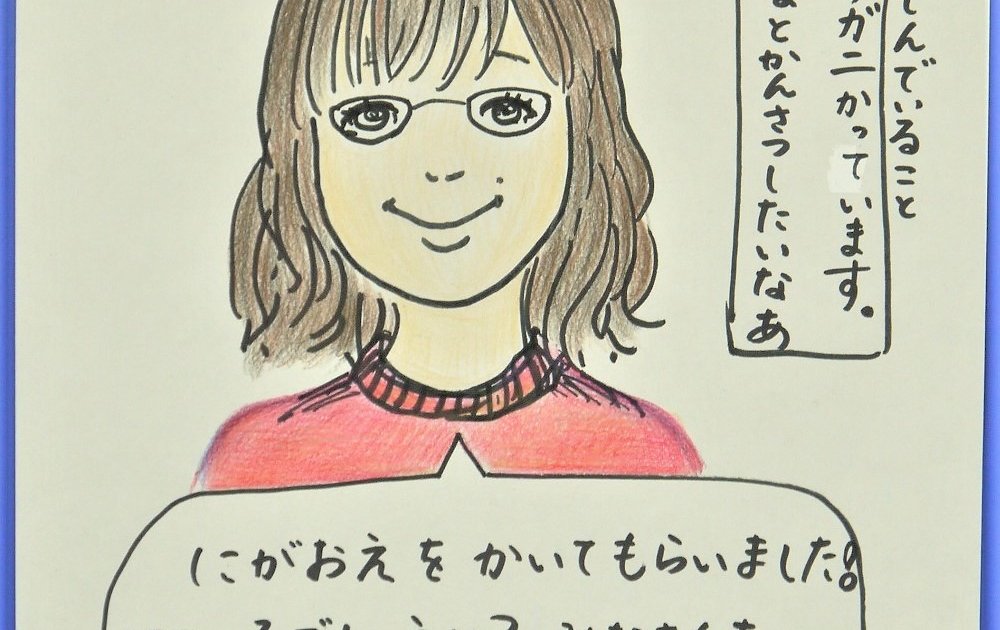 でんでいること
ガニかっています。
とかんさつしたいなあ
にがおえを かいてもらいました!